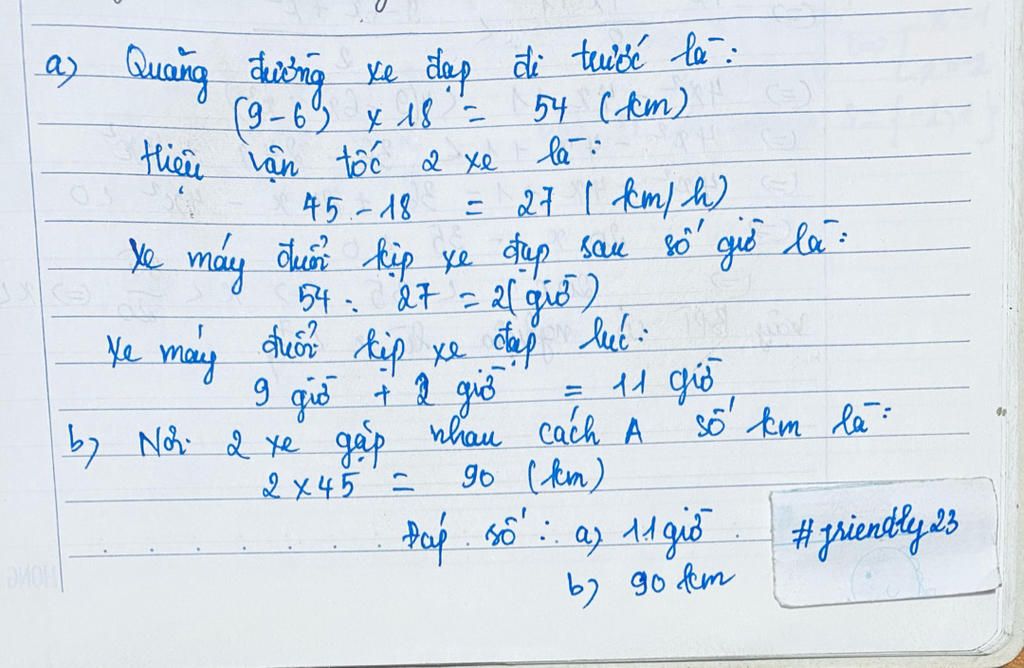 a) Quãng đường xe đạp đi trước là:
(9-6) x 18 = 54 (km)
Hiệu vận tốc 2 xe là:
45 - 18 = 27 (km/h)
Xe máy đuổi kịp xe đạp sau số giờ là:
54 : 27 = 2 (giờ)
Xe máy đuổi kịp xe đạp lúc:
9 giờ + 2 giờ = 11 giờ
b) Nơi 2 xe gặp nhau cách A số km là:
2 x 45 = 90 (km)
Đáp số: a) 11 giờ
b) 90 km
#friendly23